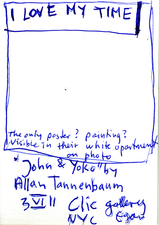 I LOVE MY TIME
The only poster? painting?
Visible in their white apartment
on photo
"John & Yoko" by
Allan Tannenbaum
3 VI 11 Clic gallery
NYC